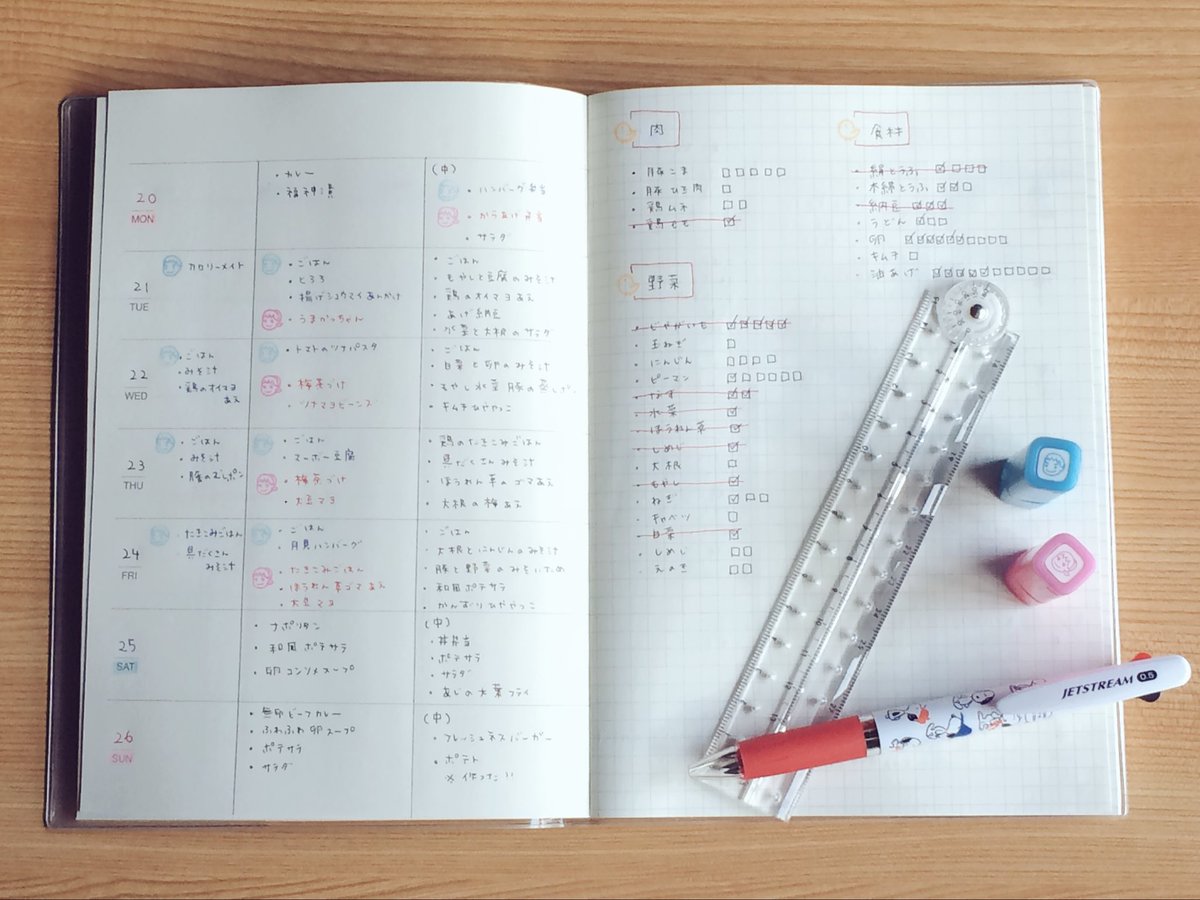 20
MON
・カレー
・福神漬
(中)
・ハンバーグ弁当
・からあげ弁当
・サラダ
21
TUE
カロリーメイト
・ごはん
・とろろ
・揚げシュウマイあんかけ
・うまかっちゃん
・ごはん
・もやしと豆腐のみそ汁
・鶏のオイマヨあえ
・あげ納豆
・水菜と大根のサラダ
22
WED
・ごはん
・みそ汁
・鶏のオイマヨ
あえ
・トマトのツナパスタ
・梅茶づけ
・ツナマヨビーンズ
・ごはん
・白菜と卵のみそ汁
・もやし水菜豚の蒸し
・キムチひややっこ
23
THU
・ごはん
・みそ汁
・豚のむしポン
・ごはん
・マーボー豆腐
・梅茶づけ
・大豆マヨ
・鶏のたきこみごはん
・具だくさんみそ汁
・ほうれん草のゴマあえ
・大根の梅あえ
24
FRI
・たきこみごはん
・具だくさん
みそ汁
・ごはん
・月見ハンバーグ
・たきこみごはん
・ほうれん草ゴマあえ
・大豆マヨ
・ごはん
・大根とにんじんのみそ汁
・豚と野菜のみそいため
・和風ポテサラ
・かんずりひややっこ
25
SAT
・ナポリタン
・和風ポテサラ
・卵コンソメスープ
(中)
・丼弁当
・ポテサラ
・サラダ
・あじの大葉フライ
26
SUN
・無印ビーフカレー
・ふわふわ卵スープ
・ポテサラ
・サラダ
(中)
・フレッシュネスバーガー
・ポテト
※作った!!
肉
・豚こま
・豚ひき肉
・鶏ムネ
・鶏もも
野菜
・じゃがいも
・玉ねぎ
・にんじん
・ピーマン
・なす
・水菜
・ほうれん草
・しめじ
・大根
・もやし
・ねぎ
・キャベツ
・白菜
・しめじ
・えのき
食材
・絹とうふ
・木綿とうふ
・納豆
・うどん
・卵
・キムチ
・油あげ
JETSTREAM 0.5